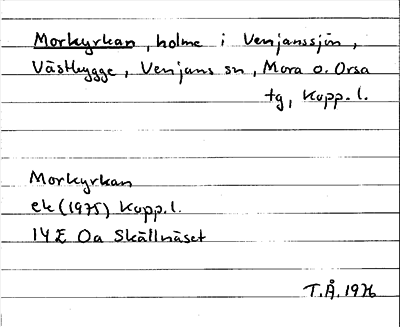 Morkyrkan, holme i Venjanssjön,
Västbygge, Venjans sn, Mora o. Orsa
tg, Kopp. l.
Morkyrkan
ek (1975) Kopp. l.
14E 0a Skällnäset
T.Å. 1976